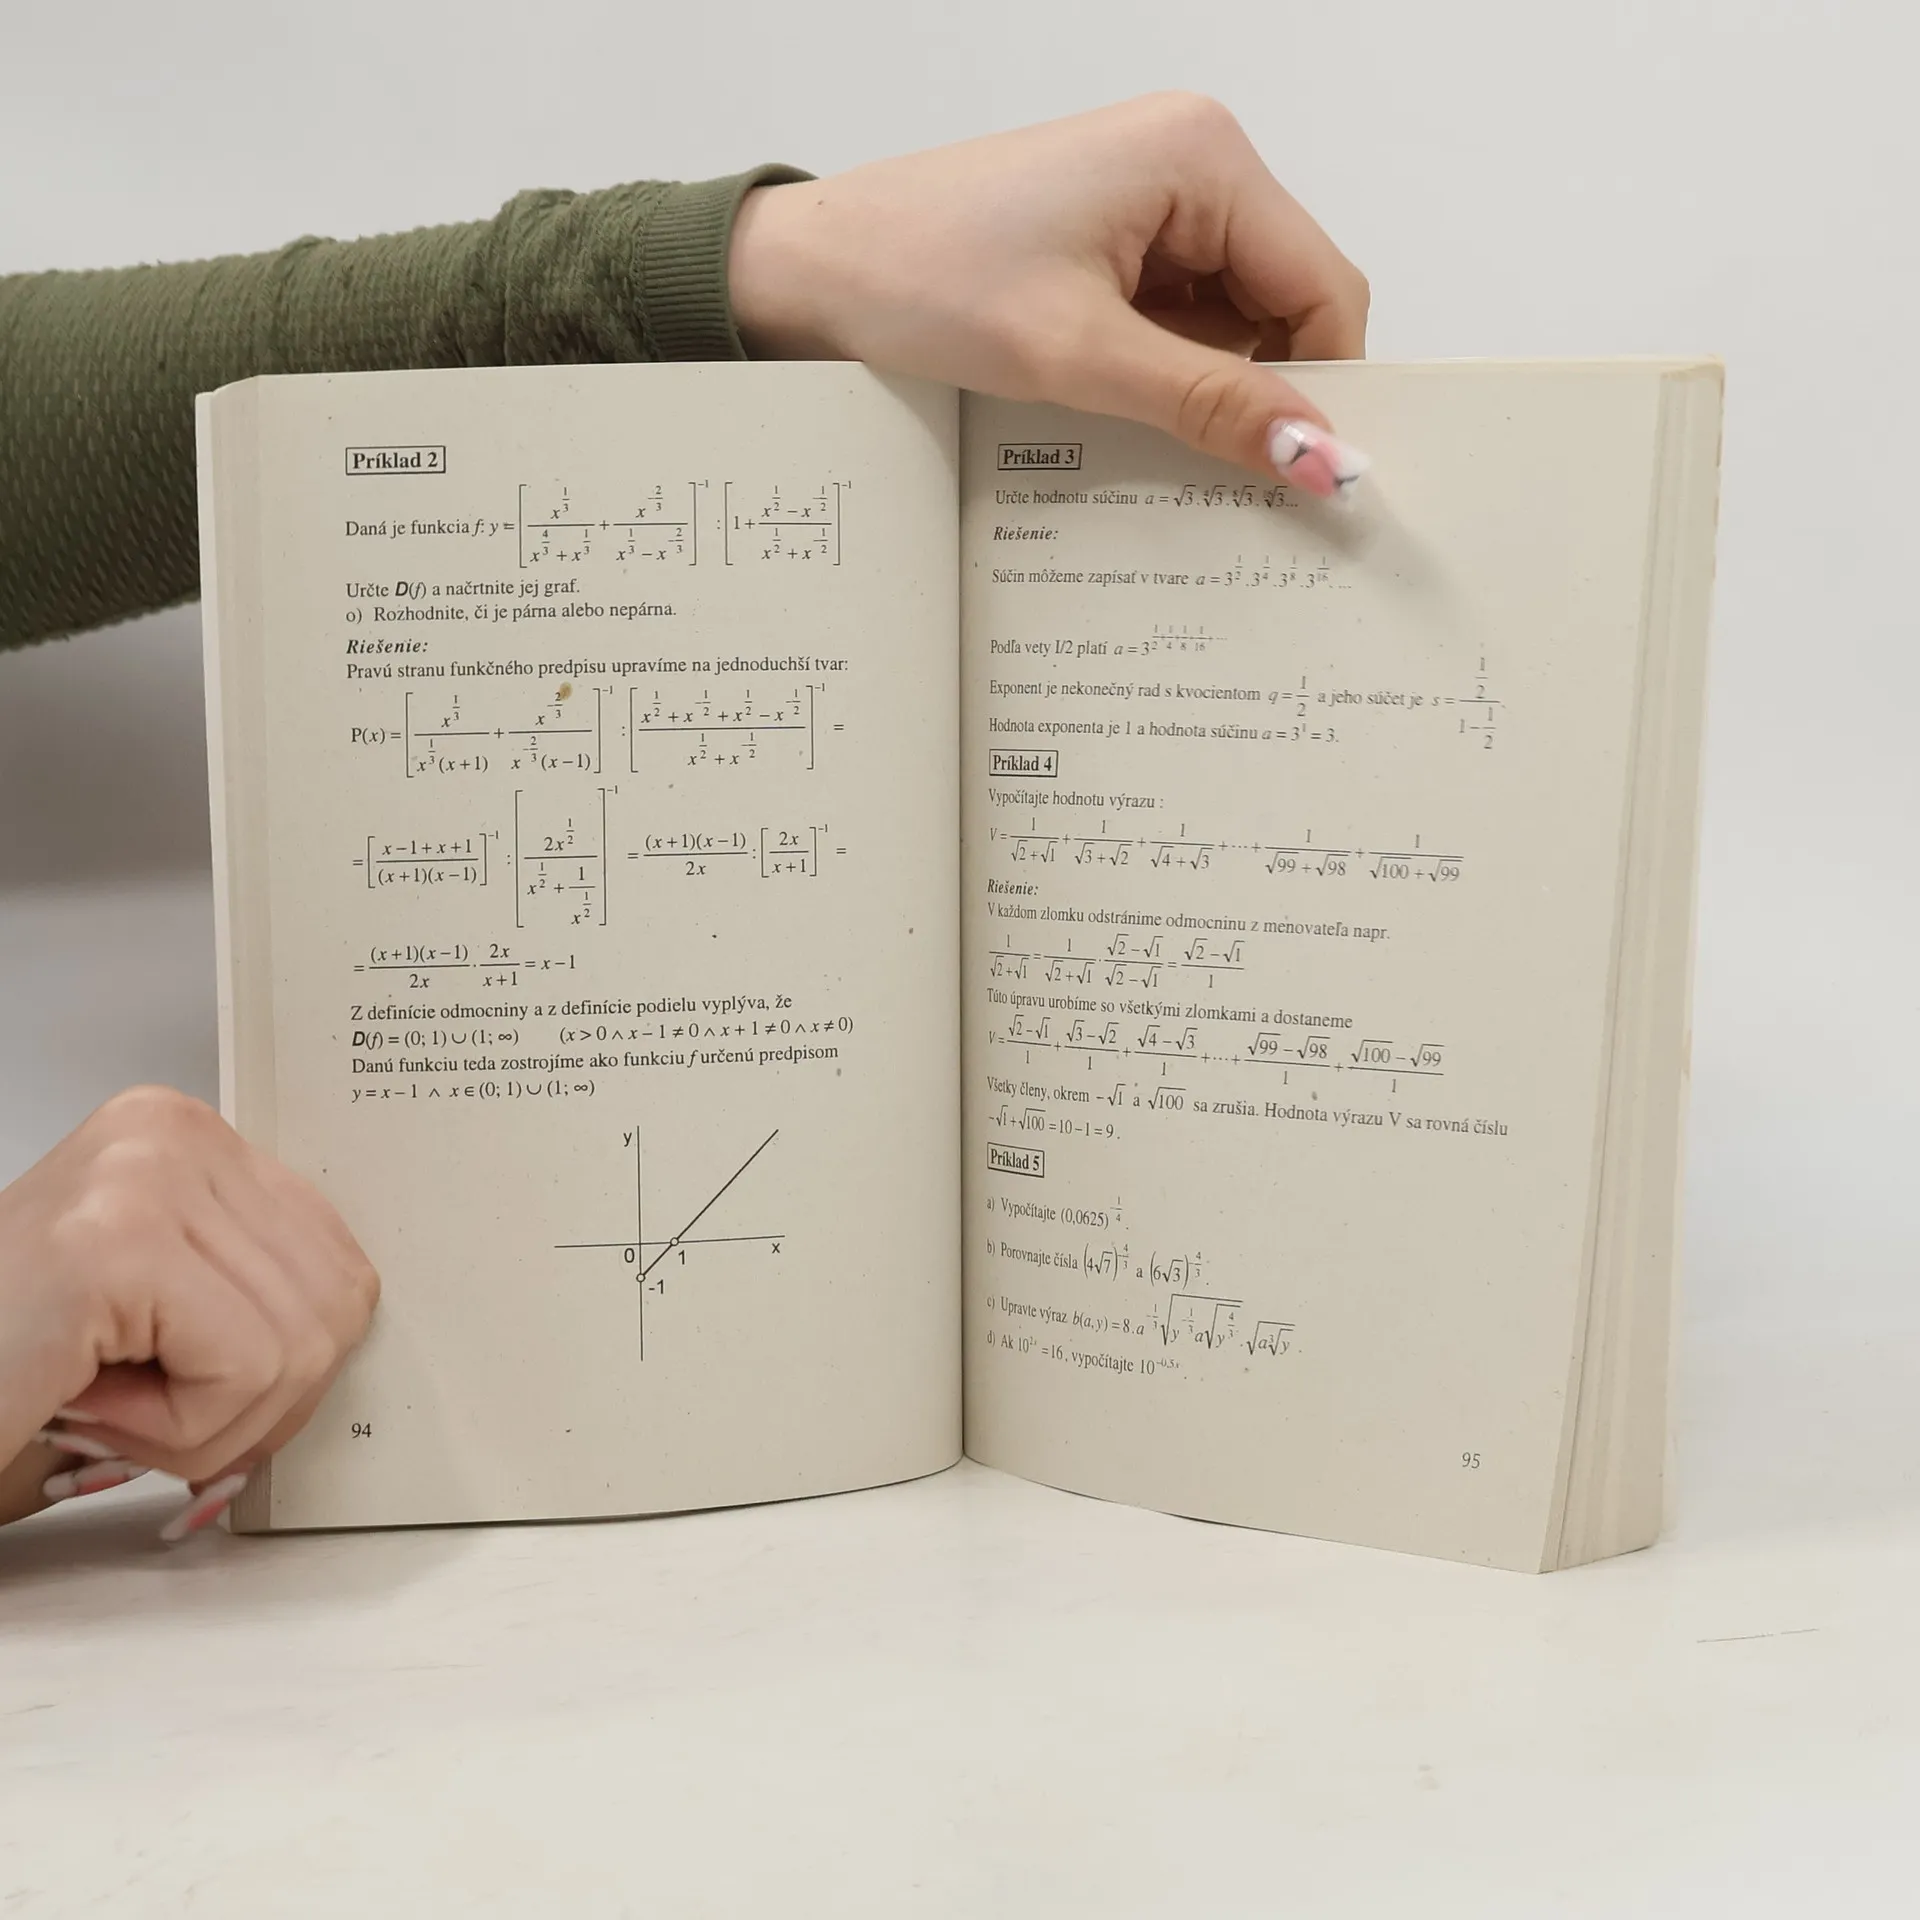 Príklad 2
Daná je funkcia f: y = [x^(1/3)/(x^(4/3) + x^(1/3)) + x^(-2/3)/(x^(1/3) − x^(-2/3))]^(-1) : [1 + (x^(1/2) − x^(-1/2))/(x^(1/2) + x^(-1/2))]^(-1)
Určte D(f) a načrtnite jej graf.
o) Rozhodnite, či je párna alebo nepárna.
Riešenie:
Pravú stranu funkčného predpisu upravíme na jednoduchší tvar:
P(x) = [x^(1/3)/(x^(1/3)(x+1)) + x^(-2/3)/(x^(-2/3)(x−1))]^(-1) : [(x^(1/2) + x^(-1/2) + x^(1/2) − x^(-1/2))/(x^(1/2) + x^(-1/2))]^(-1) =
= [(x−1+x+1)/((x+1)(x−1))]^(-1) : [2x^(1/2)/(x^(1/2) + 1/x^(1/2))]^(-1) = (x+1)(x−1)/2x : [2x/(x+1)]^(-1) =
= (x+1)(x−1)/2x . 2x/(x+1) = x−1
Z definície odmocniny a z definície podielu vyplýva, že
D(f) = (0; 1) ∪ (1; ∞) (x > 0 ∧ x − 1 ≠ 0 ∧ x + 1 ≠ 0 ∧ x ≠ 0)
Danú funkciu teda zostrojíme ako funkciu f určenú predpisom
y = x − 1 ∧ x ∈ (0; 1) ∪ (1; ∞)
y
0 1 x
-1
94
Príklad 3
Určte hodnotu súčinu a = √3 . ⁴√3 . ⁸√3 . ¹⁶√3...
Riešenie:
Súčin môžeme zapísať v tvare a = 3^(1/2) . 3^(1/4) . 3^(1/8) . 3^(1/16) . ...
Podľa vety I/2 platí a = 3^(1/2 + 1/4 + 1/8 + 1/16 + ...)
Exponent je nekonečný rad s kvocientom q = 1/2 a jeho súčet je s = (1/2)/(1 − 1/2).
Hodnota exponenta je 1 a hodnota súčinu a = 3^1 = 3.
Príklad 4
Vypočítajte hodnotu výrazu :
V = 1/(√2 + √1) + 1/(√3 + √2) + 1/(√4 + √3) + ··· + 1/(√99 + √98) + 1/(√100 + √99)
Riešenie:
V každom zlomku odstránime odmocninu z menovateľa napr.
1/(√2 + √1) = 1/(√2 + √1) . (√2 − √1)/(√2 − √1) = (√2 − √1)/1
Túto úpravu urobíme so všetkými zlomkami a dostaneme
V = (√2 − √1)/1 + (√3 − √2)/1 + (√4 − √3)/1 + ··· + (√99 − √98)/1 + (√100 − √99)/1
Všetky členy, okrem − √1 a √100 sa zrušia. Hodnota výrazu V sa rovná číslu
−√1 + √100 = 10 − 1 = 9 .
Príklad 5
a) Vypočítajte (0,0625)^(-1/4) .
b) Porovnajte čísla (4√7)^(-4/3) a (6√3)^(-4/3) .
c) Upravte výraz b(a, y) = 8 . a^(-1/3) √(y^(-1/3) a √(y^(4/3))) . √(a ³√y) .
d) Ak 10^(2x) = 16, vypočítajte 10^(-0,5x) .
95